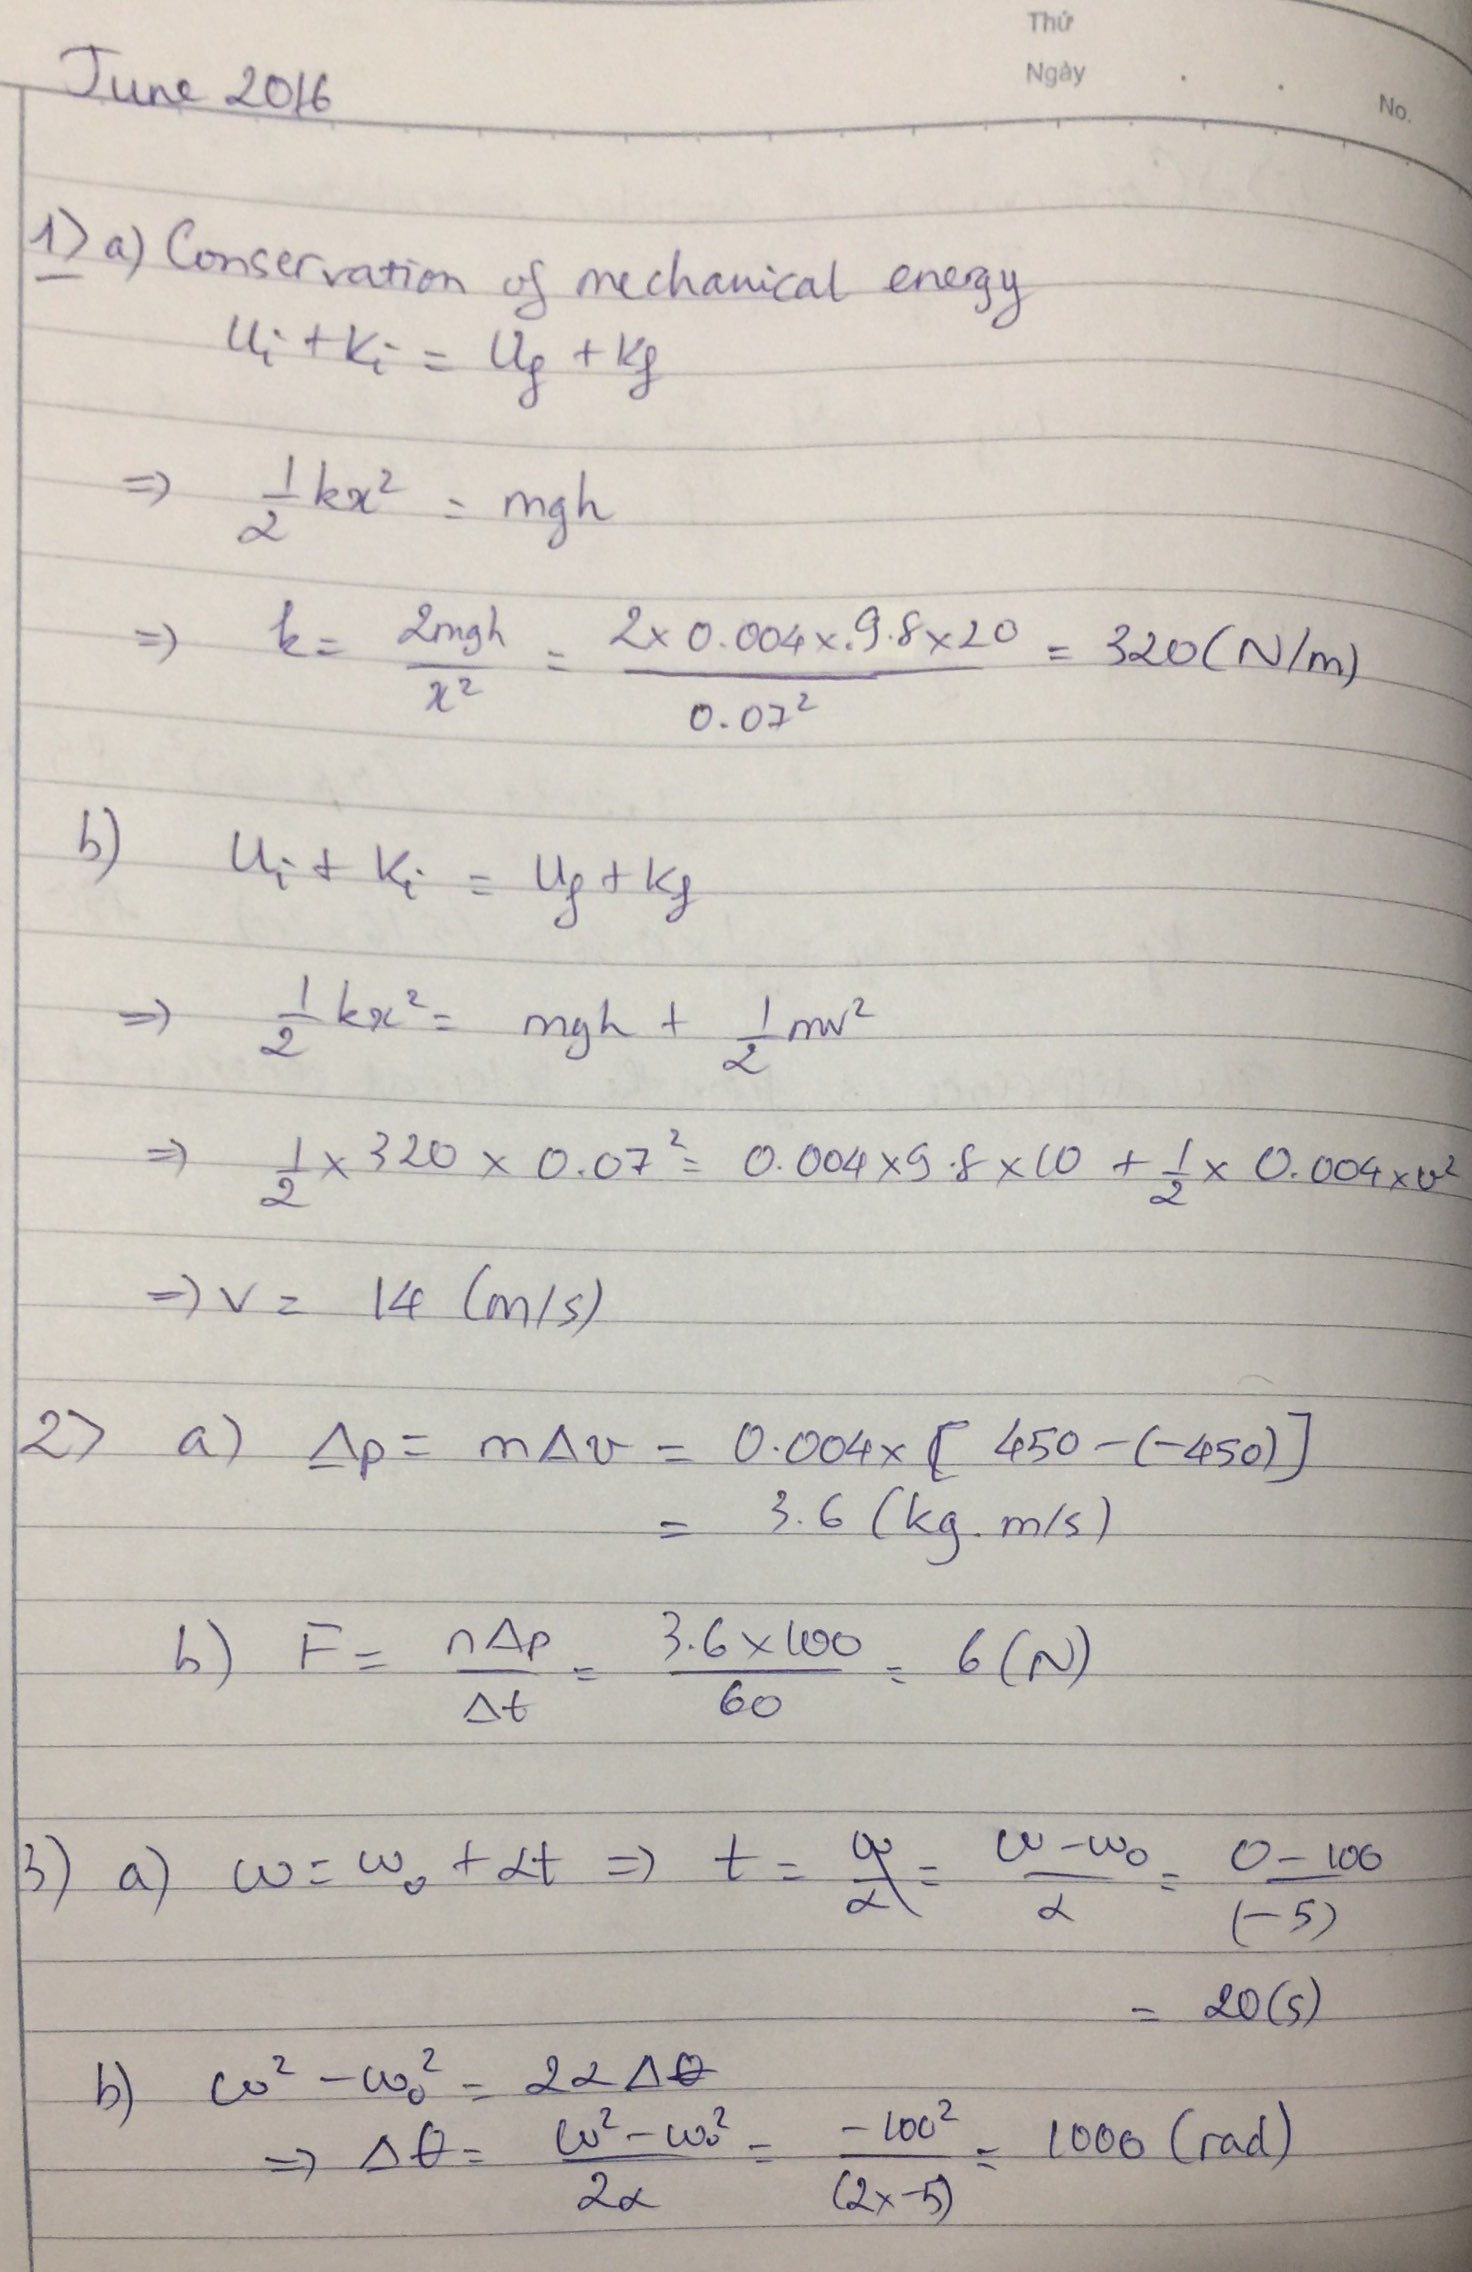 Thứ
Ngày
No.
June 2016
1> a) Conservation of mechanical energy
Ui + Ki = Uf + Kf
=> 1/2 kx² = mgh
=> k = 2mgh / x² = 2 x 0.004 x 9.8 x 20 / 0.07² = 320 (N/m)
b) Ui + Ki = Uf + Kf
=> 1/2 kx² = mgh + 1/2 mv²
=> 1/2 x 320 x 0.07² = 0.004 x 9.8 x 10 + 1/2 x 0.004 x v²
=> v = 14 (m/s)
2> a) Δp = mΔv = 0.004 x [450 - (-450)]
= 3.6 (kg.m/s)
b) F = nΔp / Δt = 3.6 x 100 / 60 = 6 (N)
3) a) ω = ω₀ + αt => t = ω/α = ω - ω₀ / α = 0 - 100 / (-5)
= 20 (s)
b) ω² - ω₀² = 2αΔθ
=> Δθ = ω² - ω₀² / 2α = -100² / (2x-5) = 1000 (rad)